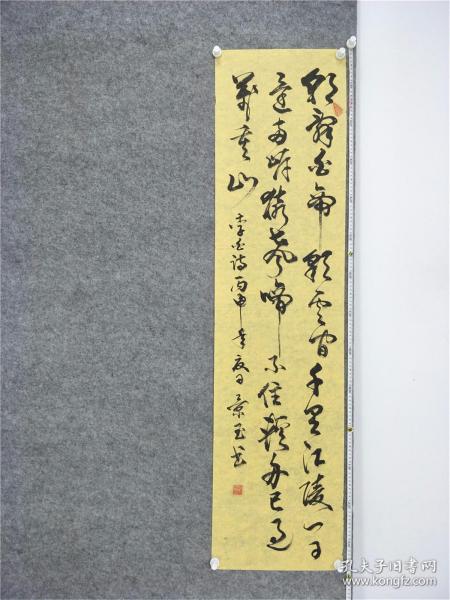 朝辭白帝彩雲間千里江陵一日
還兩岸猿聲啼不住輕舟已過
萬重山 李白詩丙申年夏日景玉书
孔夫子旧书网
www.kongfz.com